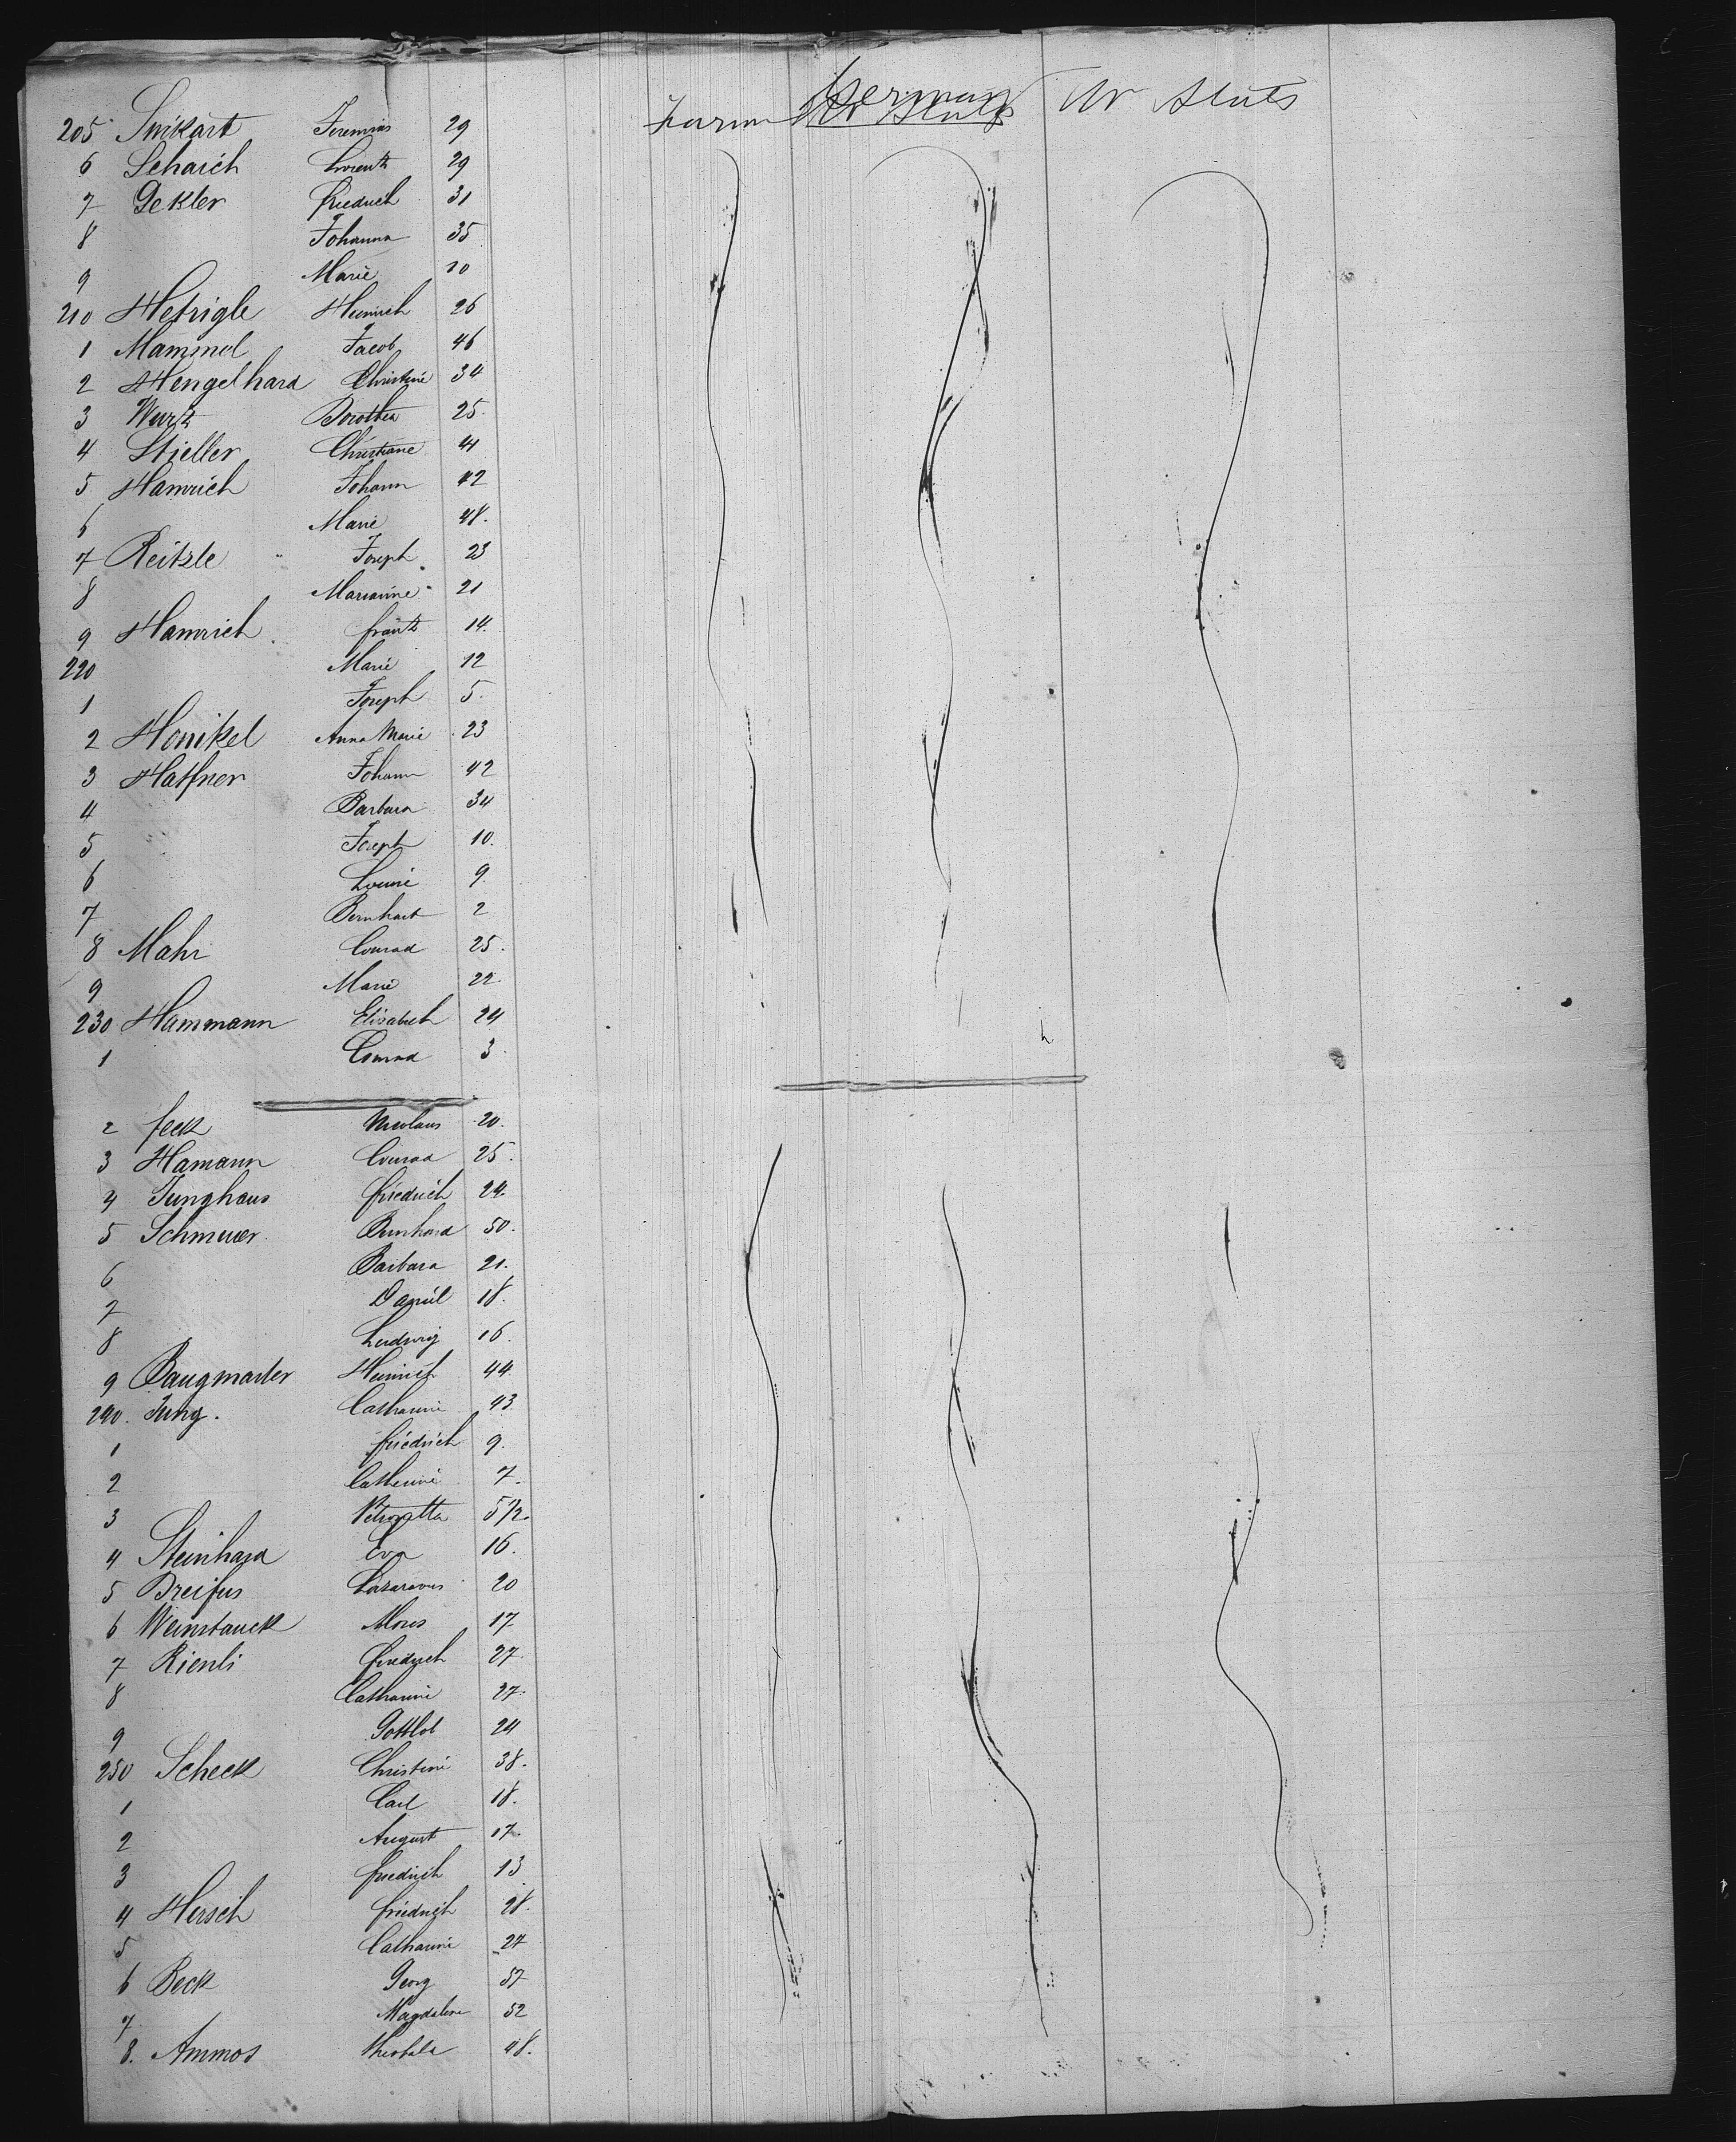 German Ur States
205 Smkart Jeremias 29 Farmer
6 Schaich Lorentz 29
7 Gekler friedrich 31
8 Johanna 35
9 Marie 10
210 Hetrigle Heinrich 26
1 Mammel Jacob 46
2 Hengelhard Christine 34
3 Wurtz Dorothea 25.
4 Stieller Christiane 41
5 Hamrich Johann 42
6 Marie 48.
7 Reitzle Joseph 23
8 Marianne 21
9 Hamrich frantz 14.
220 Marie 12
1 Joseph 5.
2 Honikel Anna Marie 23
3 Haffner Johann 42
4 Barbara 34
5 Joseph 10.
6 Louise 9.
7 Bernhart 2
8 Mahr Conrad 25.
9 Marie 22.
230 Hammann Elisabeth 24
1 Conrad 3.
2 feck Nicolaus 20.
3 Hamann Conrad 25.
4 Junghans friedrich 24.
5 Schmeuer Bernhard 50.
6 Barbara 21.
7 Daniel 18.
8 Ludwig 16.
9 Baugmaster Heinrich 44
240. Jung. Catharine 43.
1 friedrich 9.
2 Catherine 7.
3 5 1/2.
4 Steinhard Eva 16.
5 Dreifus Lazarus 20
6 Weinstauck Moses 17
7 Rienli friedrich 27.
8 Catharine 27.
9 Gottlob 24
250 Scheck Christine 38.
1 Carl 18.
2 August 17.
3 friedrich 13.
4 Hersch friedrich 28.
5 Catharine 27
6 Beck Georg 57
7 Magdalene 52
8. Ammos Theobald 48.